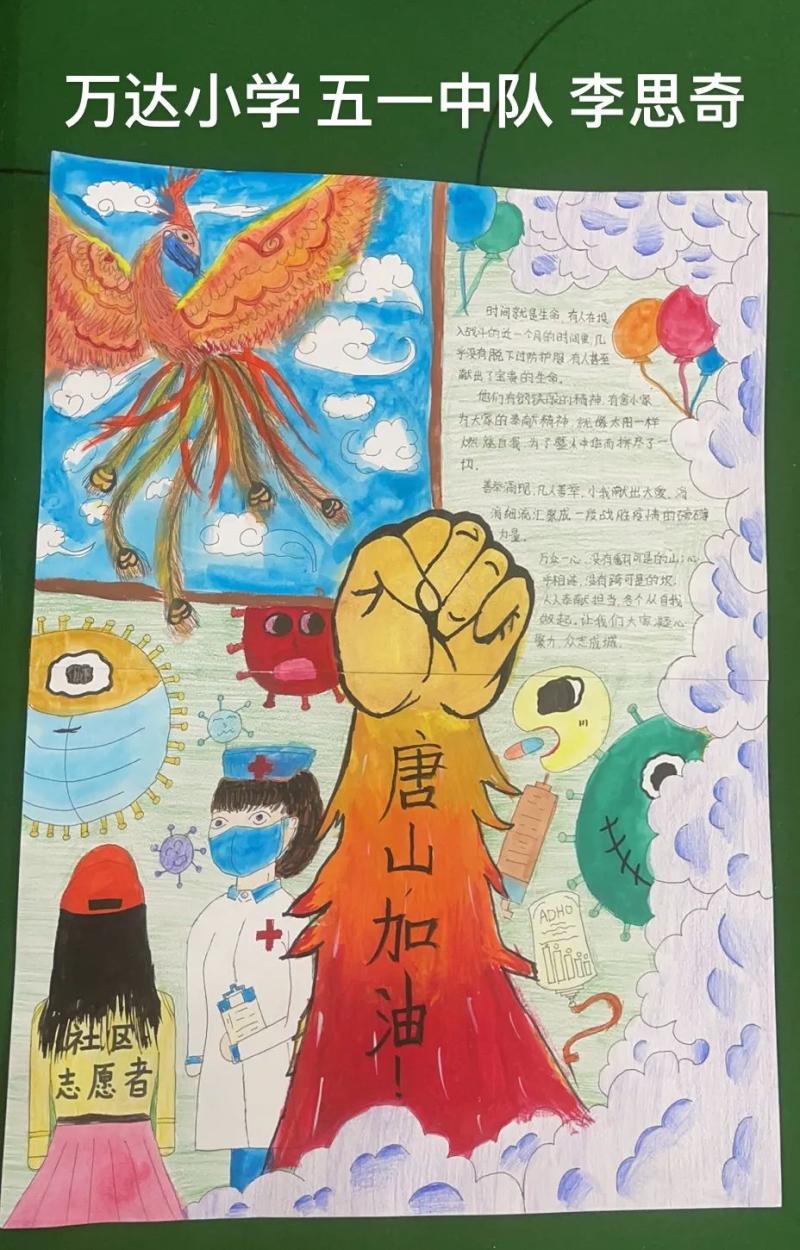 万达小学 五一中队 李思奇
时间就是生命,有人在投
入战斗的近一个月的时间里,几
乎没有脱下过防护服,有人甚至
献出了宝贵的生命。
他们有钢铁般的精神,有舍小家
为大家的奉献精神,就像太阳一样
燃烧自我,为了整个中华而拼尽了一
切。
善举涌现,凡人善举,小我献出大爱,涓
涓细流汇聚成一股战胜疫情的磅礴
力量。
万众一心,没有翻可是的山;心
手相连,没有跨可是的坎。
人人奉献担当,各个从自我
做起,让我们大家凝心
聚力,众志成城。
唐
山
加
油
!
ADHO
社区
志愿者